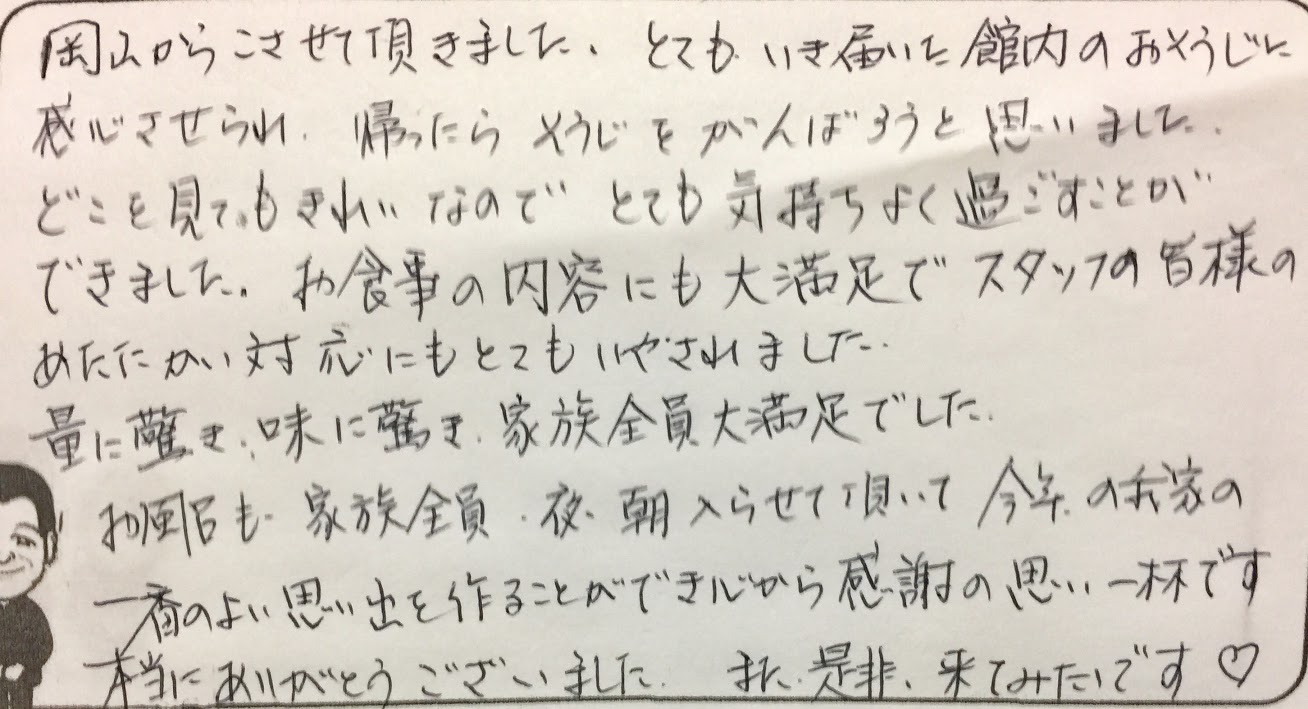 岡山からこさせて頂きました、とても いき届いた 館内の おそうじに
感心させられ、帰ったら そうじを がんばろうと 思いました、
どこを見てもきれいなので とても気持ちよく過ごすことが
できました。お食事の内容にも大満足で スタッフの皆様の
あたたかい対応にもとてもいやされました。
量に驚き、味に驚き、家族全員大満足でした、
お風呂も、家族全員、夜、朝 入らせて頂いて 今年の我家の
一番のよい思い出を作ることができ心から感謝の思い一杯です
本当にありがとうございました また、是非、来てみたいです♡